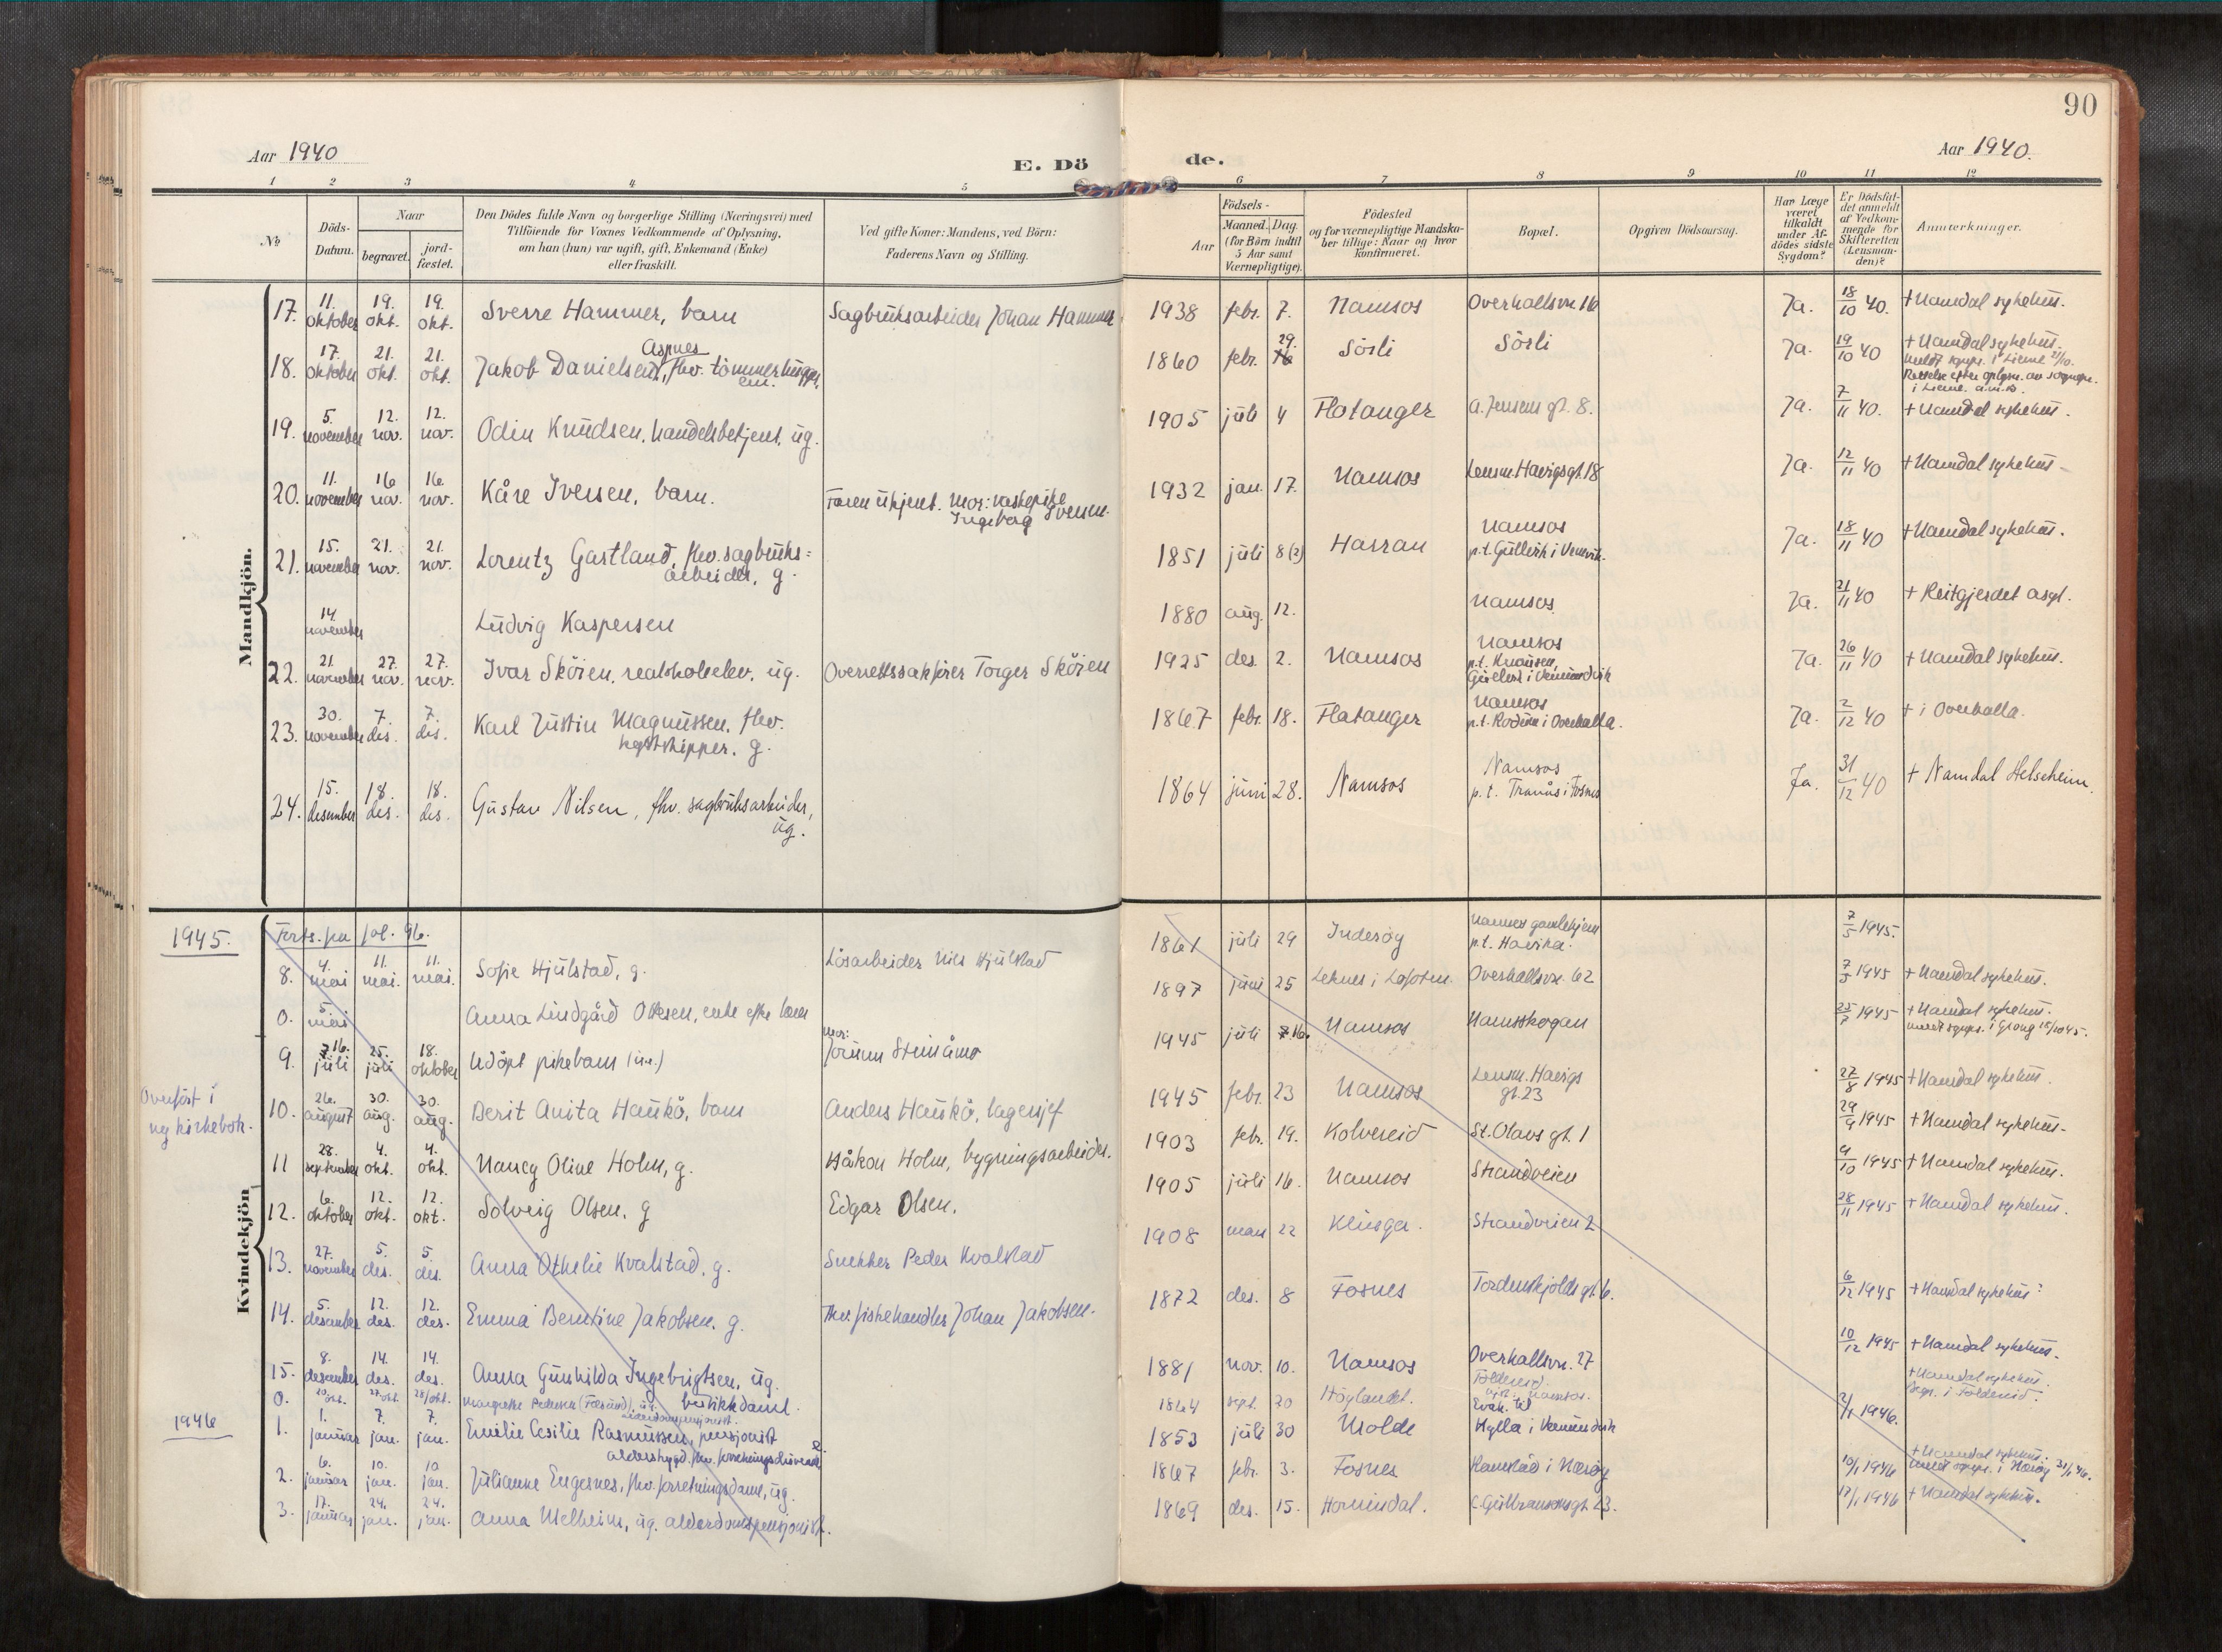 90
Aar 1940
E. Dö
de.
Aar 1940.
1 2 3 4 5 6 7 8 9 10 11 12
№
Döds-
Datum.
Naar
begravet.
jord-
fæstet.
Den Dödes fulde Navn og borgerlige Stilling (Næringsvei) med
Tilföiende for Voxnes Vedkommende af Oplysning,
om han (hun) var ugift, gift, Enkemand (Enke)
eller fraskilt.
Ved gifte Koner: Mandens, ved Börn:
Faderens Navn og Stilling.
Födsels-
Aar
Maaned. Dag.
(for Börn indtil
5 Aar samt
Værnepligtige).
Födested
og for værnepligtige Mandska-
ber tillige: Naar og hvor
konfirmeret.
Bopæl.
Opgiven Dödsaarsag.
Har Læge
været
tilkaldt
under Af-
dödes sidste
Sygdom?
Er Dödsfal-
det anmeldt
af Vedkom-
mende for
Skifteretten
(Lensman-
den)?
Anmærkninger.
Mandkjön.
17. 11. oktober 19. okt. 19. okt. Sverre Hammer, barn Sagbruksarbeider Johan Hammer 1938 febr. 7. Namsos Overhallsvn 16 Ja. 18/10 40. + Namdal sykehus.
18. 17. oktober 21. okt. 21. okt. Jakob Danielsen Aspnes, fhv. tömmerhugger, em. 1860 febr. 29. Sörli Sörli Ja. 19/10 40 + Namdal sykehus.
i Lierne
19. 5. november 12. nov. 12. nov. Odin Knudsen, handelsbetjent, ug. 1905 juli 4 Flatanger A. Jensens gt. 8. Ja. 7/11 40. + Namdal sykehus.
20. 11. november 16 nov. 16. nov. Kåre Iversen, barn. Faren ukjent. Mor: vaskepike
Ingeborg Iversen. 1932 jan. 17. Namsos Lensm. Havigsgt. 18 Ja. 12/11 40 + Namdal sykehus.
21. 15. november 21. nov. 21. nov. Lorentz Gartland, fhv. sagbruks=
arbeider, g. 1851 juli 8 (?) Harran Namsos
p.t. i Ja. 18/11 40 + Namdal sykehus.
14. november Ludvig Kaspersen 1880 aug. 12. Namsos Ja. 21/11 40 + Reitgjerdet asyl.
22. 21. november 27. nov. 27. nov. Ivar Sköien, realskoleelev, ug. Overrettssakförer Torger Sköien 1925 des. 2. Namsos Namsos
p.t. i Ja. 26/11 40 + Namdal sykehus.
23. 30. november 7. des. 7. des. Karl Justin Magnussen, fhv.
skipper. g. 1867 febr. 18. Flatanger Namsos
p.t. i Overhalla. Ja. 2/12 40 + i Overhalla.
24. 15. desember 18. des. 18. des. Gustav Nilsen, fhv. sagbruksarbeider,
ug. 1864 juni 28. Namsos Namsos
p.t. Tranås i Fosnes Ja. 31/12 40 + Namdal Helseheim.
Kvindekjön
1945. Forts. på fol. 96.
8. 4. mai 11. mai. 11. mai. Sofie Hjulstad, g. Lösarbeider Nils Hjulstad 1861 juli 29 Inderöy Namsos gamlehjem
p.t. Havika. 7/5 1945.
0. 5. mai Anna Lindgård Olsen, enke efter 1897 juni 25 Leknes i Lofoten. Overhallsvn. 62 7/5 1945 + Namdal sykehus.
9. 16. juli 25. juli 18. oktober Udöpt pikebarn (u.e.) mor:
Jorunn Steinåmo 1945 juli 16. Namsos Namsskogan 25/7 1945 + Namdal sykehus.
i Grong
Overfört i
ny kirkebok.
10. 26. august 30. aug. 30. aug. Berit Anita Haukö, barn Anders Haukö, lagersjef 1945 febr. 23 Namsos Lensm. Havigs
gt. 23 27/8 1945 + Namdal sykehus.
11 28. september 4. okt. 4. okt. Nancy Oline Holm, g. Håkon Holm, bygningsarbeider. 1903 febr. 19. Kolvereid St. Olavs gt. 1 29/9 1945 + Namdal sykehus.
12. 6. oktober 12. okt. 12. okt. Solveig Olsen, g Edgar Olsen. 1905 juli 16. Namsos Strandveien 9/10 1945 + Namdal sykehus.
13. 27. november 5. des. 5. des. Anna Othelie Kvalstad, g. Snekker Peder Kvalstad 1908 mars 22 Klinga. Strandveien 2 28/11 1945 + Namdal sykehus.
14. 5. desember 12. des. 12. des. Emma Berntine Jakobsen, g. Fhv. fiskehandler Johan Jakobsen. 1872 des. 8 Fosnes Tordenskjolds gt. 6. 6/12 1945 + Namdal sykehus.
15. 8. desember 14. des. 14. des. Anna Gunhilda Ingebrigtsen, ug.
butikkdame. 1881 nov. 10. Namsos Overhallsvn. 27 10/12 1945 + Namdal sykehus.
0. 20 okt. 28/okt. Margrethe Pedersen 1864 sept. 20 Höylandet. + Namdal sykehus.
1946
1. 1. januar 7. jan. 7. jan. Emilie Cesilie Rasmussen, pensjonist 1853 juli 30 Molde Hylla i 2/1 1946.
2. 6. januar 10. jan. 10 jan. Julianne Engesnes, fhv. forretningsdame, ug. 1867 febr. 3. Fosnes Ramstad i Næröy 10/1 1946 + Namdal sykehus.
i Næröy
3. 17. januar 24. jan. 24. jan. Anna Melheim, ug. alderdomspensjonist. 1869 des. 15. Hornindal. C. Gulbransonsgt. 23. 17/1 1946 + Namdal sykehus.